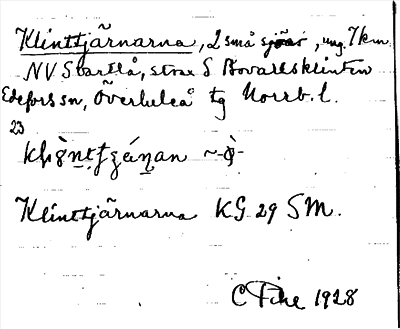 Klinttjärnarna, 2 små sjöar, ung. 7 km
NV Svartlå, strax S Bovallsklinten
Edefors sn, Överluleå tg Norrb. l.
23
Klinttjärnarna KG 29 SM.
C 1928